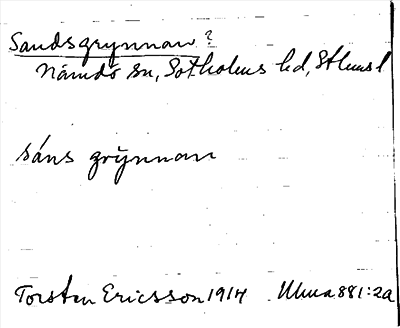 Sandsgrynnan?
Nämdö sn, Sotholms hd, Sthms l
sáns grỳnnan
Torsten Ericsson 1914 Ulma 881:2a